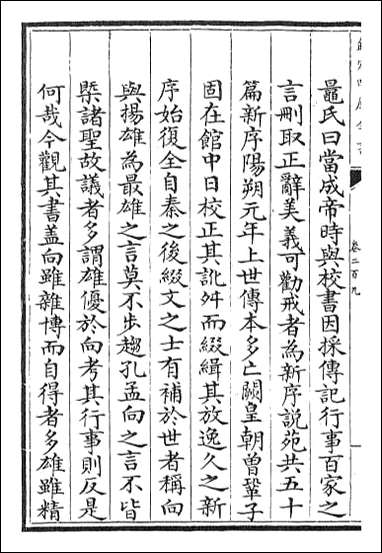 鼂氏曰當成帝時與校書因採傳記行事百家之
言刪取正辭美義可勸戒者為新序說苑共五十
篇新序陽朔元年上世傳本多亡闕皇朝曾鞏子
固在館中日校正其訛舛而綴緝其放逸久之新
序始復全自秦之後綴文之士有補於世者稱向
與揚雄為最雄之言莫不步趨孔孟向之言不皆
槩諸聖故議者多謂雄優於向考其行事則反是
何哉今觀其書盖向雖雜博而自得者多雄雖精
卷二百九